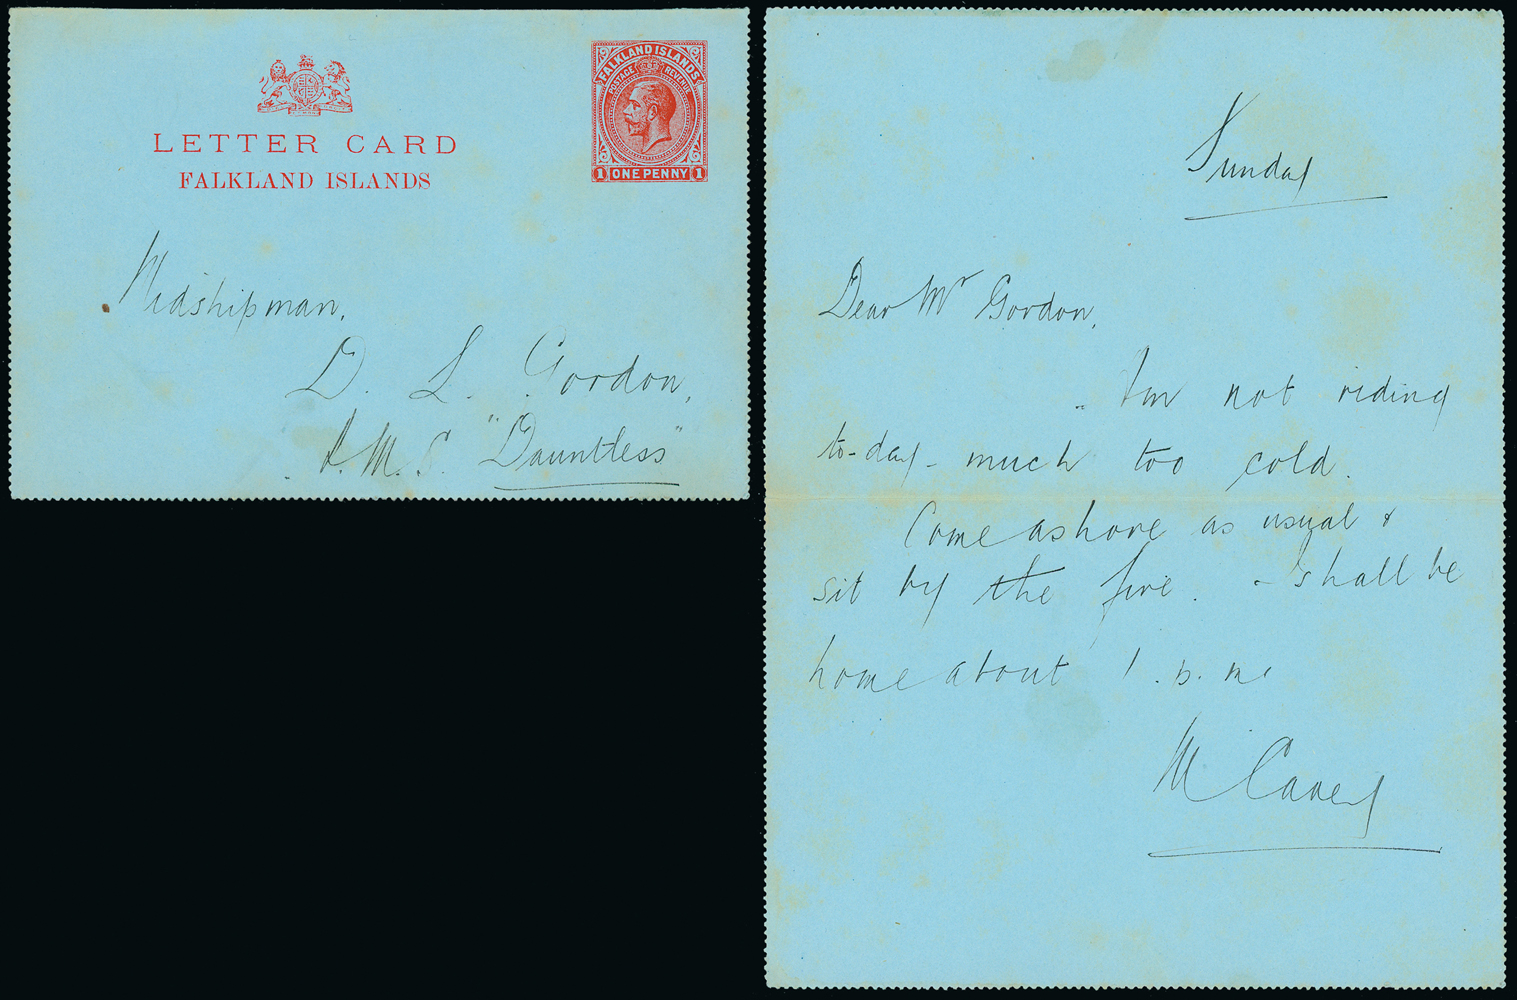 FALKLAND ISLANDS
POSTAGE REVENUE
1 ONE PENNY 1
LETTER CARD
FALKLAND ISLANDS
Midshipman,
D. L. Gordon,
H.M.S. "Dauntless"
Sunday
Dear Mr Gordon,
I'm not riding
to-day - much too cold.
Come ashore as usual &
sit by the fire. - I shall be
home about 1.p.m.
M Carey